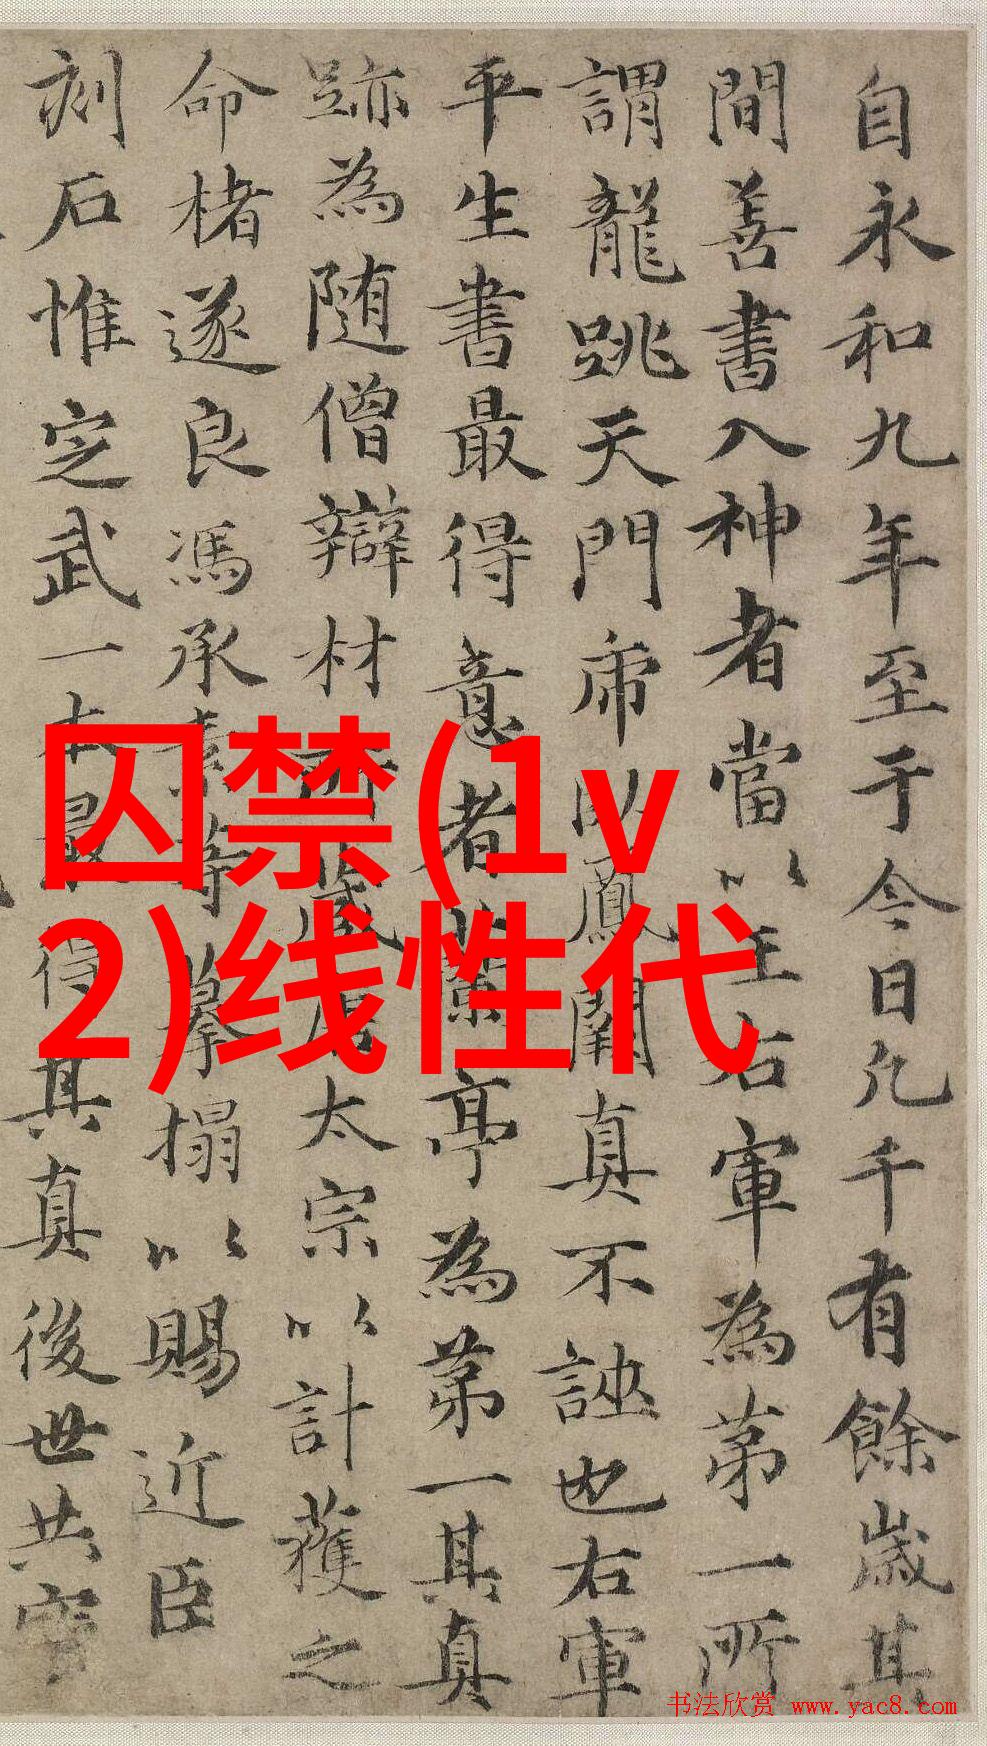 自永和九年至于今日凡千有餘歲其
間善書入神者當以王右軍為第一所
謂龍跳天門帍以鳳闕真不誣也右軍
平生書最得意者以蘭亭為第一其真
跡為随僧辯材所藏唐太宗以計獲之
命楮遂良馮承素等摹搨以賜近臣
刻石惟定武一本最得其真後世共寳
囚禁(1v
2)线性代
书法欣赏 www.yac8.com